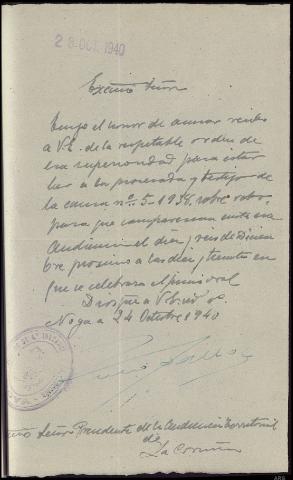 28 OCT. 1940
Excmo Señor
Tengo el honor de acusar recibo
a V.E. de la respetable orden de
esa superioridad para citar
a la procesada y testigo de
la causa nº 5-1934, sobre robo,
para que comparezcan ante esa
Audiencia el día seis de Diciem
bre proximo a las diez y treinta en
que se celebrara el juicio oral
Dios gue a V.E. 
Noya a 24 Octubre 1940
Señor Presidente de la Audiencia Territorial
de
La Coruña